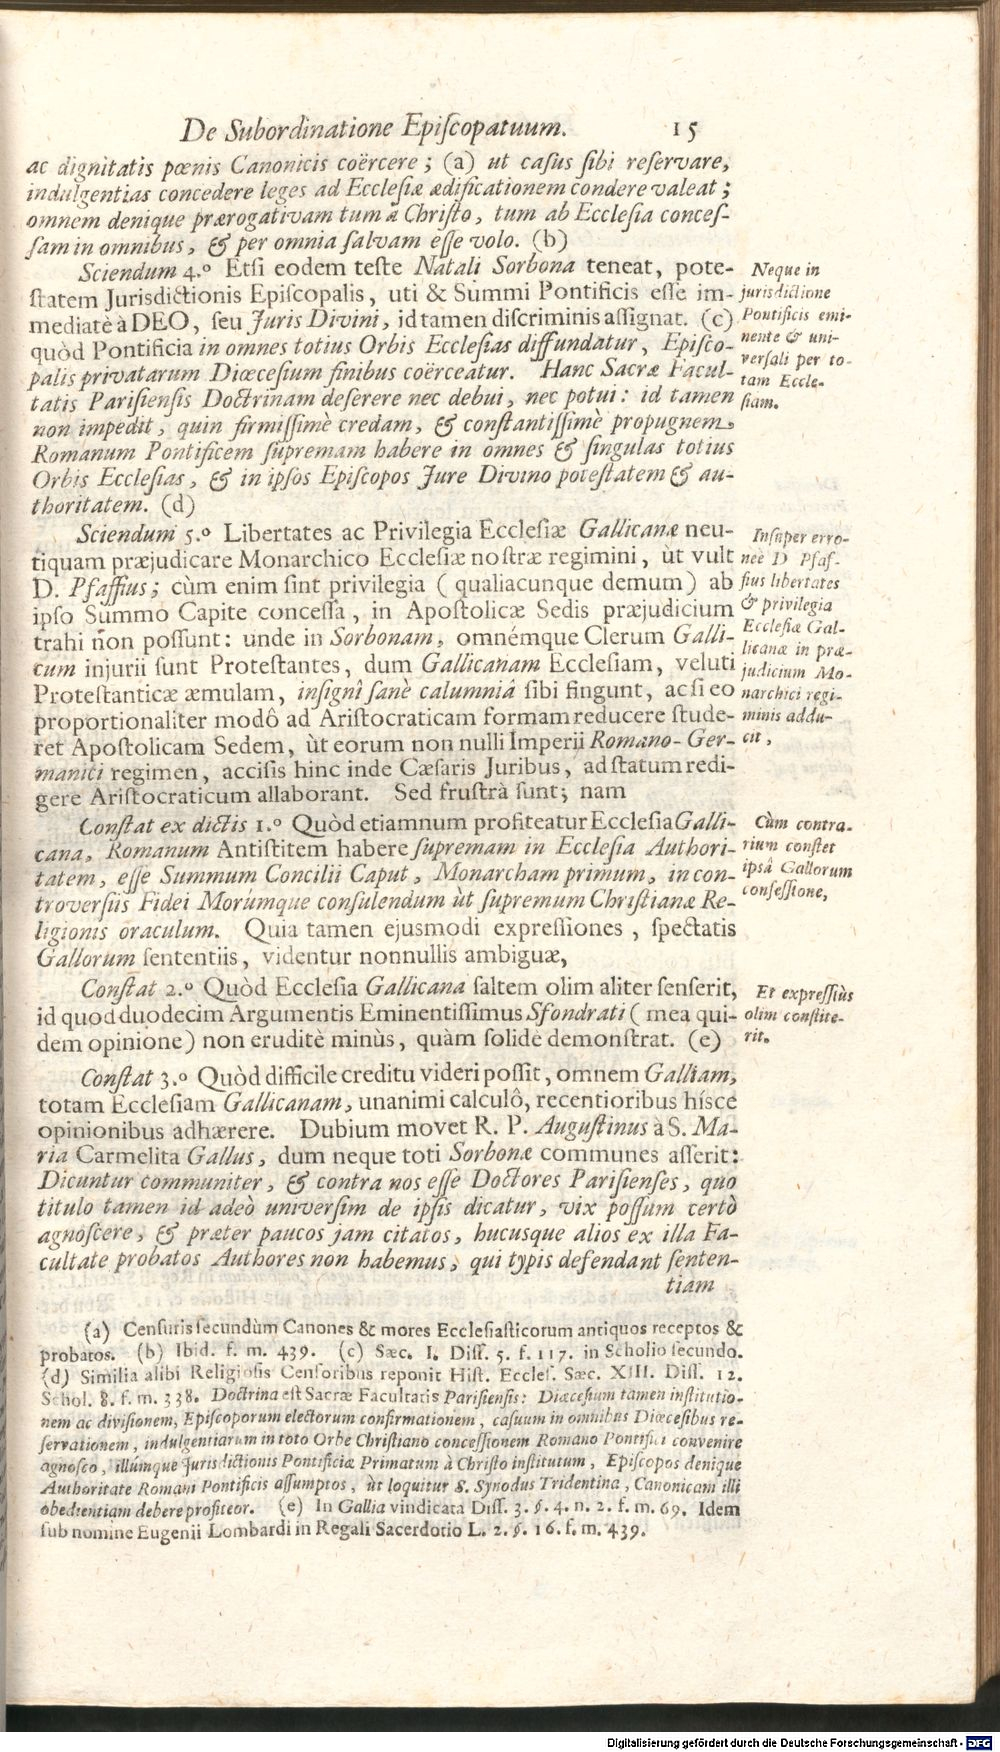 De Subordinatione Episcopatuum. 15
ac dignitatis pœnis Canonicis coërcere; (a) ut casus sibi reservare,
indulgentias concedere leges ad Ecclesiæ ædificationem condere valeat;
omnem denique prærogativam tum à Christo, tum ab Ecclesia conces-
sam in omnibus, & per omnia salvam esse volo. (b)
Sciendum 4.º Etsi eodem teste Natali Sorbona teneat, pote-
statem Jurisdictionis Episcopalis, uti & Summi Pontificis esse im-
mediatè à DEO, seu Juris Divini, id tamen discriminis assignat. (c)
quòd Pontificia in omnes totius Orbis Ecclesias diffundatur, Episco-
palis privatarum Diœcesium finibus coërceatur. Hanc Sacræ Facul-
tatis Parisiensis Doctrinam deserere nec debui, nec potui: id tamen
non impedit, quin firmissimè credam, & constantissimè propugnem,
Romanum Pontificem supremam habere in omnes & singulas totius
Orbis Ecclesias, & in ipsos Episcopos Jure Divino potestatem & au-
thoritatem. (d)
Neque in
jurisdictione
Pontificis emi-
nente & uni-
versali per to-
tam Eccle-
siam.
Sciendum 5.º Libertates ac Privilegia Ecclesiæ Gallicanæ neu-
tiquam præjudicare Monarchico Ecclesiæ nostræ regimini, ùt vult
D. Pfaffius; cùm enim sint privilegia (qualiacunque demum) ab
ipso Summo Capite concessa, in Apostolicæ Sedis præjudicium
trahi non possunt: unde in Sorbonam, omnémque Clerum Galli-
cum injurii sunt Protestantes, dum Gallicanam Ecclesiam, veluti
Protestanticæ æmulam, insignî sanè calumniâ sibi fingunt, ac si eo
proportionaliter modô ad Aristocraticam formam reducere stude-
ret Apostolicam Sedem, ùt eorum non nulli Imperii Romano-Ger-
manici regimen, accisis hinc inde Cæsaris Juribus, ad statum redi-
gere Aristocraticum allaborant. Sed frustrà sunt; nam
Insuper erro-
neè D. Pfaf-
fius libertates
& privilegia
Ecclesiæ Gal-
licanæ in præ-
judicium Mo-
narchici regi-
minis addu-
cit,
Constat ex dictis 1.º Quòd etiamnum profiteatur Ecclesia Galli-
cana, Romanum Antistitem habere supremam in Ecclesia Authori-
tatem, esse Summum Concilii Caput, Monarcham primum, in con-
troversiis Fidei Morúmque consulendum ùt supremum Christianæ Re-
ligionis oraculum. Quia tamen ejusmodi expressiones, spectatis
Gallorum sententiis, videntur nonnullis ambiguæ,
Cùm contra-
rium constet
ipsâ Gallorum
confessione,
Constat 2.º Quòd Ecclesia Gallicana saltem olim aliter senserit,
id quod duodecim Argumentis Eminentissimus Sfondrati (mea qui-
dem opinione) non eruditè minùs, quàm solidè demonstrat. (e)
Et expressiùs
olim constite-
rit.
Constat 3.º Quòd difficile creditu videri possit, omnem Galliam,
totam Ecclesiam Gallicanam, unanimi calculô, recentioribus hísce
opinionibus adhærere. Dubium movet R. P. Augustinus à S. Ma-
ria Carmelita Gallus, dum neque toti Sorbonæ communes asserit:
Dicuntur communiter, & contra nos esse Doctores Parisienses, quo
titulo tamen id adeò universim de ipsis dicatur, vix possum certò
agnoscere, & præter paucos jam citatos, hucusque alios ex illa Fa-
cultate probatos Authores non habemus, qui typis defendant senten-
tiam
(a) Censuris secundùm Canones & mores Ecclesiasticorum antiquos receptos &
probatos. (b) Ibid. f. m. 439. (c) Sæc. I. Diss. 5. f. 117. in Scholio secundo.
(d) Similia alibi Religiosis Censoribus reponit Hist. Eccles. Sæc. XIII. Diss. 12.
Schol. 8. f. m. 338. Doctrina est Sacræ Facultatis Parisiensis: Diœcesium tamen institutio-
nem ac divisionem, Episcoporum electorum confirmationem, casuum in omnibus Diœcesibus re-
servationem, indulgentiarum in toto Orbe Christiano concessionem Romano Pontifici convenire
agnosco, illúmque Jurisdictionis Pontificiæ Primatum à Christo institutum, Episcopos denique
Authoritate Romani Pontificis assumptos, ùt loquitur S. Synodus Tridentina, Canonicam illi
obedientiam debere profiteor. (e) In Gallia vindicata Diss. 3. §. 4. n. 2. f. m. 69. Idem
sub nomine Eugenii Lombardi in Regali Sacerdotio L. 2. §. 16. f. m. 439.
Digitalisierung gefördert durch die Deutsche Forschungsgemeinschaft - DFG